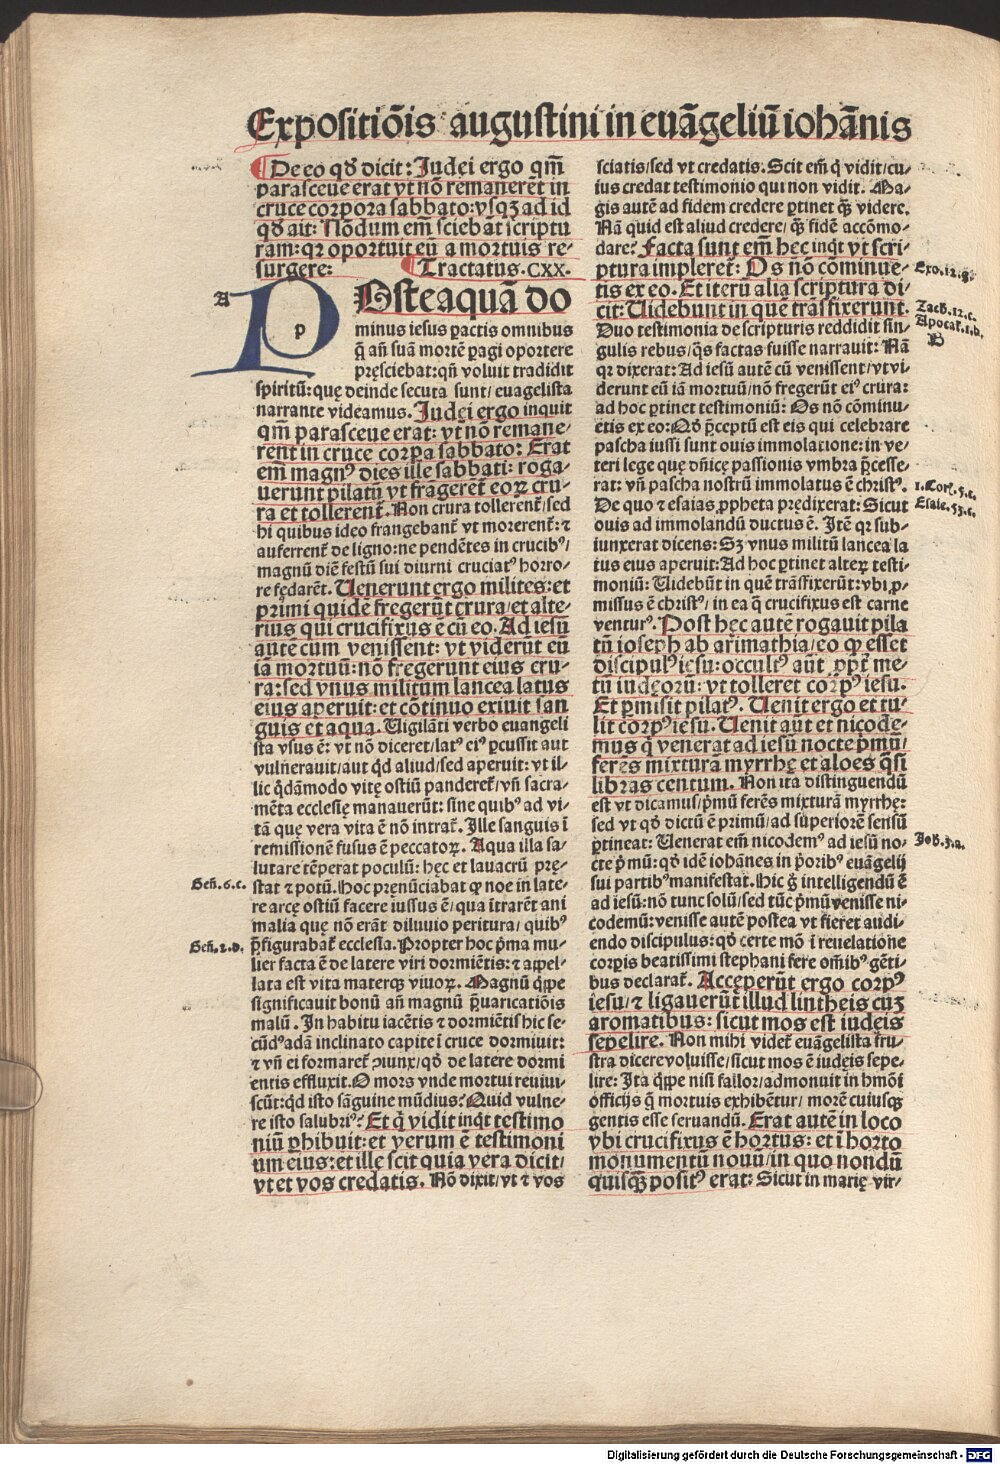 Expositiõis augustini in euãgeliũ iohãnis
De eo qð dicit: Iudęi ergo qm̃
parasceue erat vt nõ remanerẽt in
cruce corpora sabbato: vsqꝫ ad id
qð ait: Nõdum em̃ sciebãt scriptu
ram: qꝛ oportuit eũ a mortuis re-
surgere: Tractatus. CXX.
A
P p
Osteaquã do
minus iesus ꝑactis omnibus
q̃ añ suã mortẽ ꝑagi oportere
pręsciebat: qñ voluit tradidit
spiritũ: quę deinde secuta sunt/ euãgelista
narrante videamus. Iudęi ergo inquit
qm̃ parasceue erat: vt nõ remane/
rent in cruce corpa sabbato: Erat
em̃ magnꝰ dies ille sabbati: roga/
uerunt pilatũ vt frãgerẽt eoꝝ cru/
ra et tollerent̃. Non crura tollerent̃/sed
hi quibus ideo frangebant̃ vt morerent̃: ⁊
auferrent̃ de ligno: ne pendẽtes in crucibꝰ/
magnũ diẽ festũ sui diurni cruciatꝰ horro/
re fędarẽt. Uenerunt ergo milites: et
primi quidẽ fregerũt crura/et alte/
rius qui crucifixus ẽ cũ eo. Ad iesũ
autẽ cum venissent: vt viderũt eũ
iã mortuũ: nõ fregerunt eius cru/
ra: sed vnus militum lancea latus
eius aperuit: et cõtinuo exiuit san
guis et aqua. Uigilãti verbo euangeli
sta vsus ẽ: vt nõ diceret/latꝰ eiꝰ ꝑcussit aut
vulnerauit/aut qd aliud/sed aperuit: vt il/
lic q̃dãmodo vitę ostiũ panderet̃/vñ sacra/
mẽta ecclesię manauerũt: sine quibꝰ ad vi/
tã quę vera vita ẽ nõ intrat̃. Ille sanguis ĩ
remissionẽ fusus ẽ peccatoꝝ. Aqua illa sa/
lutare tẽperat poculũ: hęc et lauacrũ prę/
Geñ. 6. c. stat ⁊ potũ. Hoc prenũciabat ꝙ noe in late/
re arcę ostiũ facere iussus ẽ/ qua ĩtrarẽt ani
malia quę nõ erãt diluuio peritura/ quibꝰ
Geñ. 2. d. p̃figurabat̃ ecclesia. Propter hoc p̃ma mu/
lier facta ẽ de latere viri dormiẽtis: ⁊ appel/
lata est vita materqꝫ viuoꝝ. Magnũ q̃ppe
significauit bonũ añ magnũ p̃uaricatiõis
malũ. In habitu iacẽtis ⁊ dormiẽtis hic se/
cũdꝰ adã inclinato capite ĩ cruce dormiuit:
⁊ vñ ei formaret̃ ꝯiunx/qð de latere dormi
entis effluxit. O mors vnde mortui reuiui/
scũt: qd isto sãguine mũdius? Quid vulne/
re isto salubriꝰ? Et q̃ vidit inq̃t testimo
niũ ꝑhibuit: et verum ẽ testimoni
um eius: et ille scit quia vera dicit/
vt et vos credatis. Nõ dixit/vt ⁊ vos
sciatis/sed vt credatis. Scit em̃ q̃ vidit/cu/
ius credat testimonio qui non vidit. Ma/
gis autẽ ad fidem credere ꝑtinet q̃ꝫ videre.
Nã quid est aliud credere/ q̃ꝫ fidẽ accõmo/
dare? Facta sunt em̃ hec inq̃t vt scri/
ptura impleret̃: Os nõ cõminue/ Exo. 12. g.
tis ex eo. Et iterũ alia scriptura di/
cit: Uidebunt in quẽ trãsfixerunt. Zach. 12. c.
Duo testimonia de scripturis reddidit sin/ Apocaľ. 1. b.
gulis rebus/ q̃s factas fuisse narrauit: Nã B
qꝛ dixerat: Ad iesũ autẽ cũ venissent/vt vi/
derunt eũ iã mortuũ/nõ fregerũt eiꝰ crura:
ad hoc ꝑtinet testimoniũ: Os nõ cõminu/
etis ex eo: Qð p̃ceptũ est eis qui celebrare
pascha iussi sunt ouis immolatione: in ve/
teri lege quę dñicę passionis vmbra p̃cesse/
rat: vñ pascha nostrũ immolatus ẽ christꝰ. 1. Coꝛ. 5. c.
De quo ⁊ esaias ꝓpheta prędixerat: Sicut Esaie. 53. c.
ouis ad immolandũ ductus ẽ. Itẽ qꝛ sub/
iunxerat dicens: Sꝫ vnus militũ lancea la
tus eius aperuit: Ad hoc ꝑtinet alteꝝ testi/
moniũ: Uidebũt in quẽ trãsfixerũt: vbi ꝓ/
missus ẽ christꝰ/ in ea q̃ crucifixus est carne
venturꝰ. Post hęc autẽ rogauit pila
tũ ioseph ab arimathia/eo ꝙ esset
discipulꝰ iesu: occultꝰ aũt ꝓpt̃ me/
tũ iudęorũ: vt tolleret corpꝰ iesu.
Et ꝑmisit pilatꝰ. Uenit ergo et tu/
lit corpꝰ iesu. Uenit aũt et nicode/
mus q̃ venerat ad iesũ nocte p̃mũ/
ferẽs mixturã myrrhę et aloes q̃si
libras centum. Non ita distinguendũ
est vt dicamus/ p̃mũ ferẽs mixturã myrrhę:
sed vt qð dictũ ẽ primũ/ad superiorẽ sensũ
ꝑtineat: Uenerat em̃ nicodemꝰ ad iesũ no/ Joh. 3. a.
cte p̃mũ: qð idẽ iohãnes in p̃oribꝰ euãgelij
sui partibꝰ manifestat. Hic g̃ intelligendũ ẽ
ad iesũ: nõ tunc solũ/sed tũc p̃mũ venisse ni/
codemũ: venisse autẽ postea vt fieret audi/
endo discipulus: qð certe mõ ĩ reuelatione
corꝑis beatissimi stephani fere om̃ibꝰ gẽti/
bus declarat̃. Acceperũt ergo corpꝰ
iesu/ ⁊ ligauerũt illud lintheis cuꝫ
aromatibus: sicut mos est iudęis
sepelire. Non mihi videt̃ euãgelista fru/
stra dicere voluisse/sicut mos ẽ iudęis sepe/
lire: Ita q̃ppe nisi fallor/admonuit in hm̃oi
officijs q̃ mortuis exhibẽtur/ morẽ cuiusqꝫ
gentis esse seruandũ. Erat autẽ in loco
vbi crucifixus ẽ hortus: et ĩ horto
monumentũ nouũ/in quo nondũ
quisq̃ꝫ positꝰ erat: Sicut in marię vir/
Digitalisierung gefördert durch die Deutsche Forschungsgemeinschaft - DFG